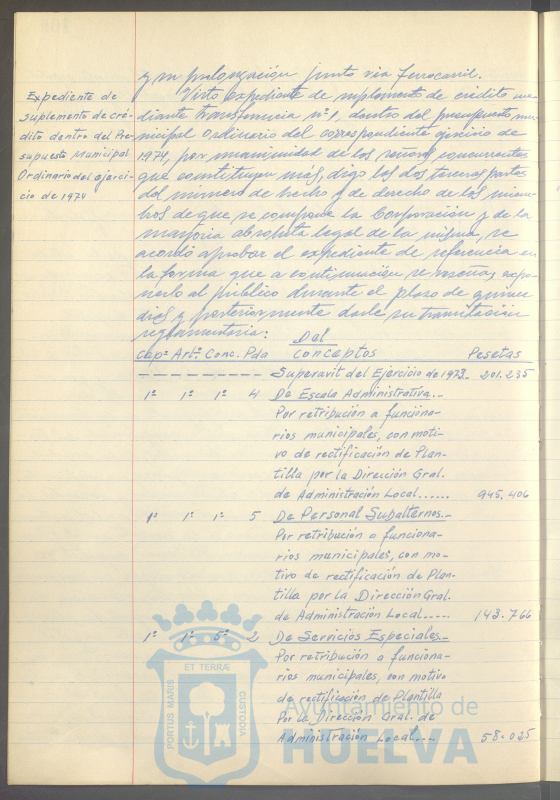 y su prolongación junto via ferrocarril.
Expediente de
suplemento de cré-
dito dentro del Pre-
supuesto Municipal
Ordinario del ejerci-
cio de 1974
Visto expediente de suplemento de crédito me-
diante transferencia nº 1, dentro del presupuesto mu-
nicipal Ordinario del correspondiente ejercicio de
1974, por unanimidad de los señores concurrentes
que constituyen más, digo las dos terceras partes
del número de hecho y de derecho de los miem-
bros de que se compone la Corporación y de la
mayoria absoluta legal de la misma, se
acordó aprobar el expediente de referencia en
la forma que a continuación se reseña, expo-
nerlo al público durante el plazo de quince
dias y posteriormente darle su tramitación
reglamentaria:
Del
Capº Artº Conc. Pda Conceptos Pesetas
Superavit del Ejercicio de 1973 201.235
1º 1º 1º 4 De Escala Administrativa.-
Por retribución a funciona-
rios municipales, con moti-
vo de rectificación de Plan-
tilla por la Dirección Gral.
de Administración Local...... 945.406
1º 1º 1º 5 De Personal Subalternos.-
Por retribución a funciona-
rios municipales, con mo-
tivo de rectificación de Plan-
tilla por la Dirección Gral.
de Administración Local..... 143.766
1º 1º 5º 2 De Servicios Especiales.-
Por retribución a funciona-
rios municipales, con motivo
de rectificación de Plantilla
Por la Dirección Gral. de
Administración Local.... 58.025
ET TERRÆ
PORTUS MARIS
CUSTODIA
Ayuntamiento de
HUELVA